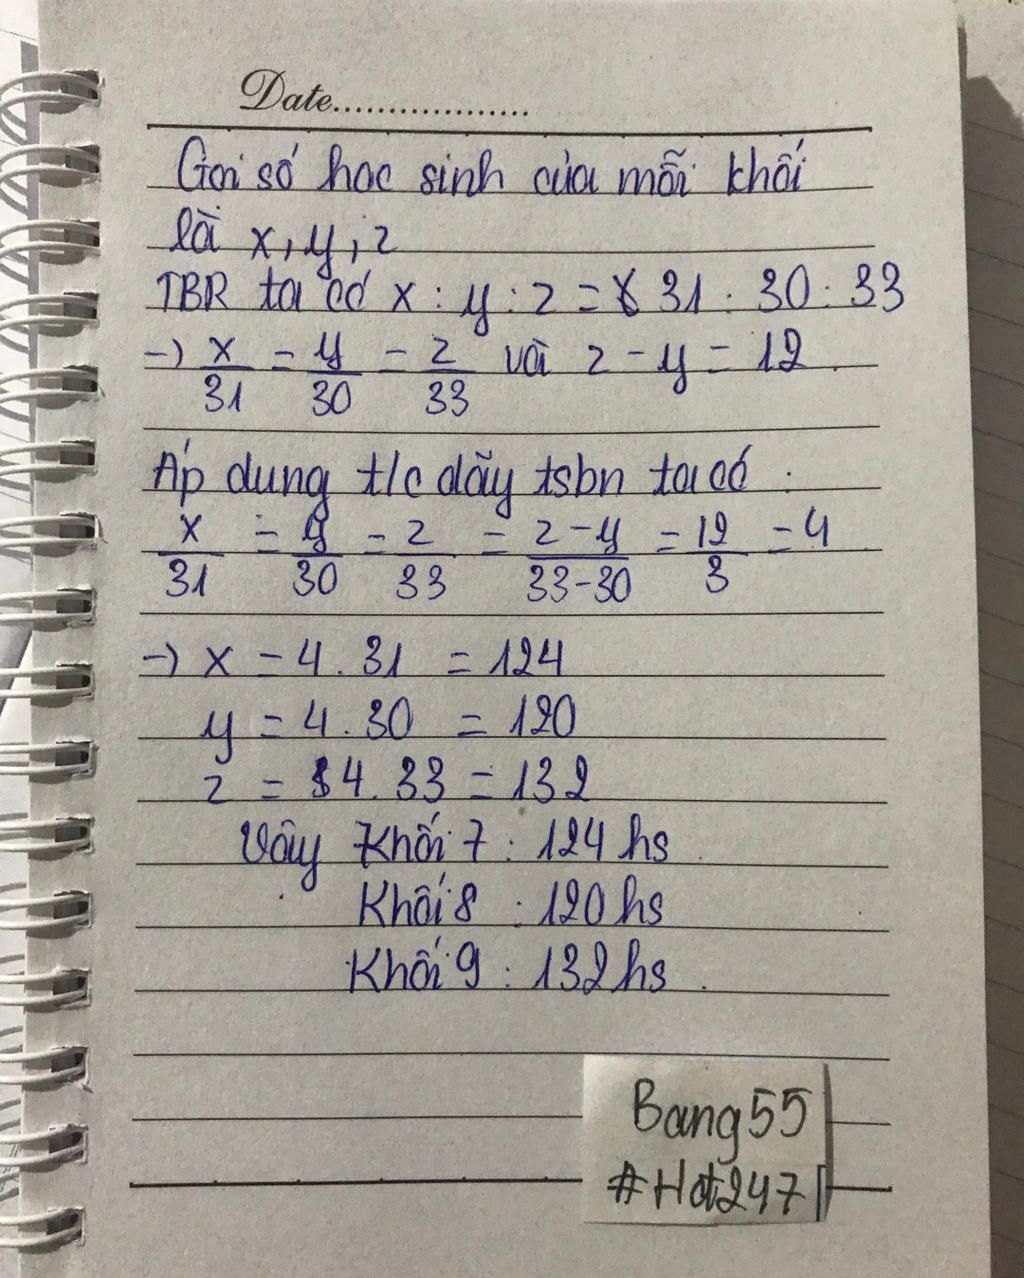 Date..................
Gọi số học sinh của mỗi khối
là x, y, z
TBR ta có x : y : z = 31 : 30 : 33
→ x/31 = y/30 = z/33 và z - y = 12.
Áp dụng t/c dãy tsbn ta có :
x/31 = y/30 = z/33 = z-y/33-30 = 12/3 = 4
→ x = 4 . 31 = 124
y = 4 . 30 = 120
z = 4 . 33 = 132
Vậy Khối 7 : 124 hs.
Khối 8 : 120 hs
Khối 9 : 132 hs.
Bang55
#Hot247